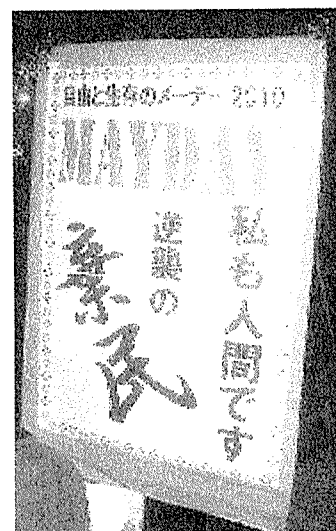 自由と生存のメーデー 2010
MAYDAY
私も人間です
逆襲の
棄民